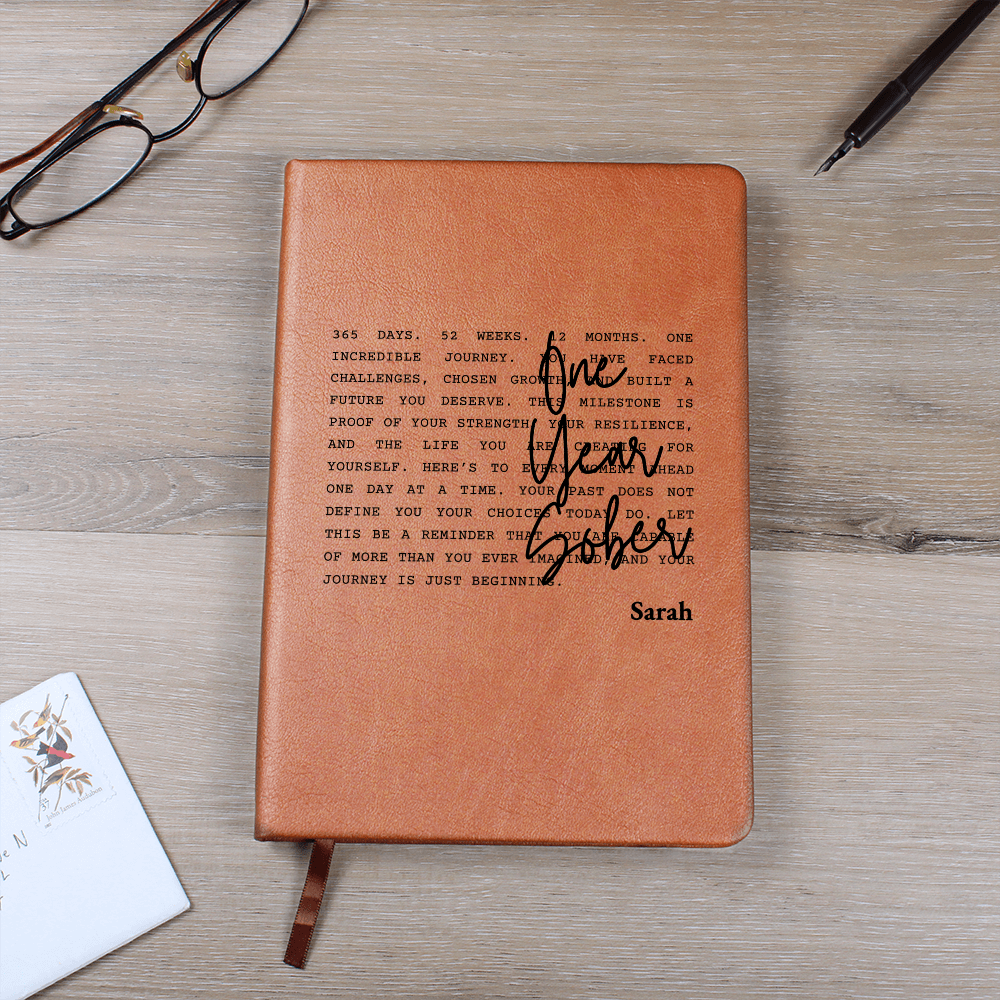 365 DAYS. 52 WEEKS. 12 MONTHS. ONE
INCREDIBLE JOURNEY. YOU HAVE FACED
CHALLENGES, CHOSEN GROWTH, AND BUILT A
FUTURE YOU DESERVE. THIS MILESTONE IS
PROOF OF YOUR STRENGTH, YOUR RESILIENCE,
AND THE LIFE YOU ARE CREATING FOR
YOURSELF. HERE'S TO EVERY MOMENT AHEAD
ONE DAY AT A TIME. YOUR PAST DOES NOT
DEFINE YOU YOUR CHOICES TODAY DO. LET
THIS BE A REMINDER THAT YOU ARE CAPABLE
OF MORE THAN YOU EVER IMAGINED, AND YOUR
JOURNEY IS JUST BEGINNING.
One
Year
Sober
Sarah
37
John James Audubon
N
L